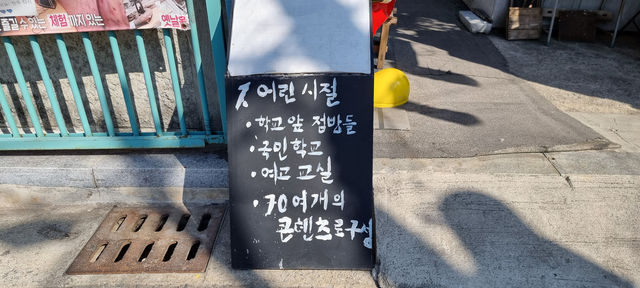 즐길 수 있는 체험까지 있는 옛날
어린시절
· 학교앞 점방들
· 국민학교
· 여고교실
· 70여개의
콘텐츠로구성